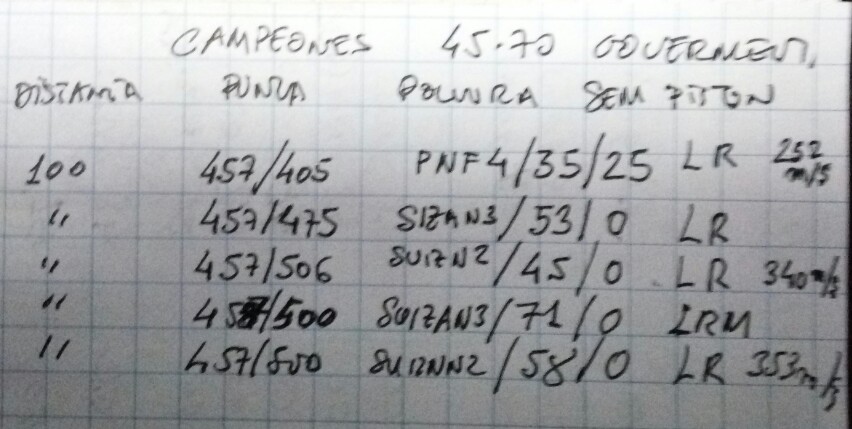 CAMPEONES 45.70 GOVERMENT,
DISTANCIA PUNTA POLVORA SEM PISTON
100 457/405 PNF4/35/25 LR 252 m/s
" 457/475 SIZAN3/53/0 LR
" 457/506 SUIZN2/45/0 LR 340 m/s
" 457/500 SUIZAN3/71/0 LRM
" 457/500 SUIZNN2/58/0 LR 353 m/s